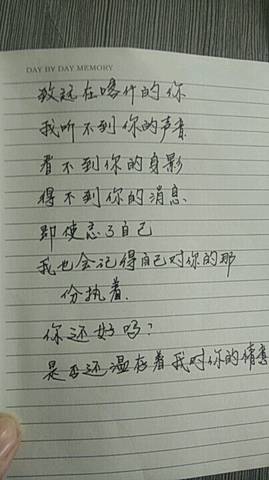 DAY BY DAY MEMORY
致远在喀什的你
我听不到你的声音
看不到你的身影
得不到你的消息
即使忘了自己
我也会记得自己对你的那
份执着.
你还好吗?
是否还温存着我对你的情意